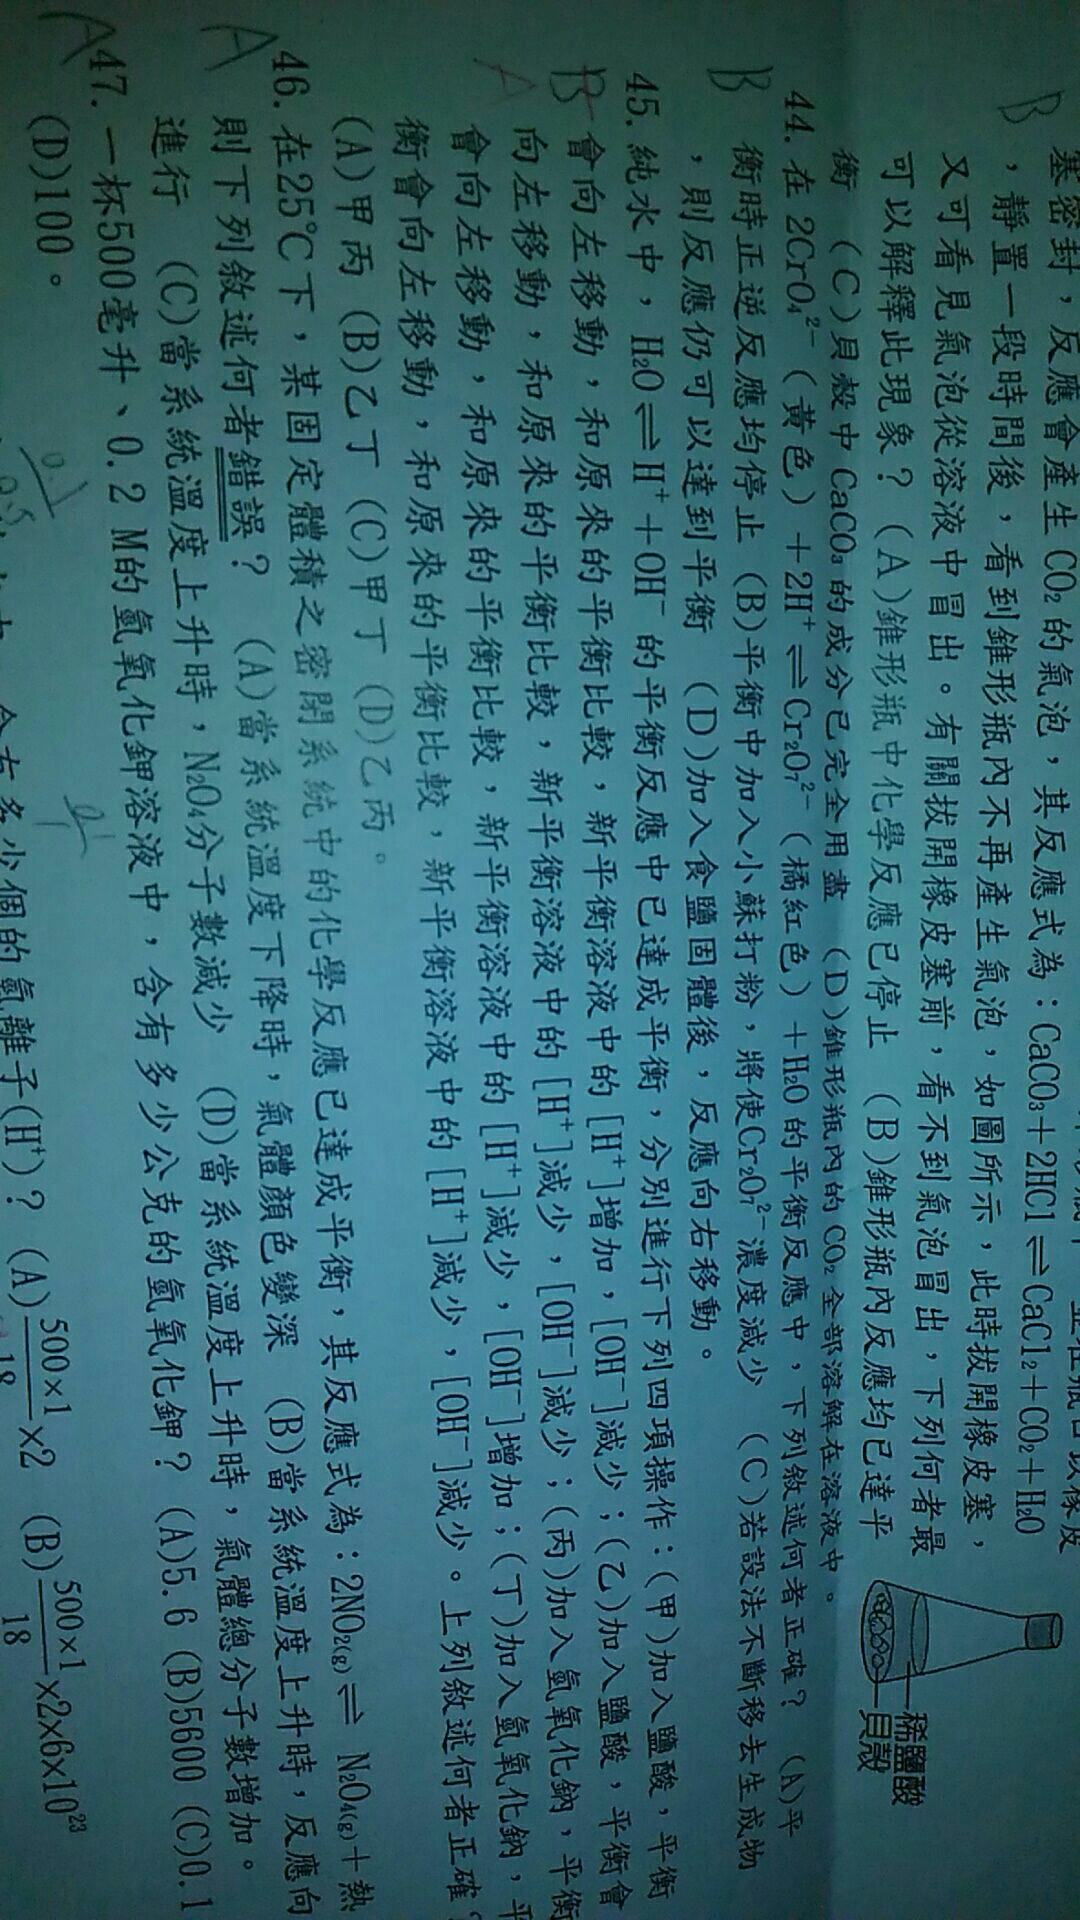 塞密封，反應會產生CO₂的氣泡，其反應式為：CaCO₃＋2HCl⇌CaCl₂＋CO₂＋H₂O
B
，靜置一段時間後，看到錐形瓶內不再產生氣泡，如圖所示，此時拔開橡皮塞，
又可看見氣泡從溶液中冒出。有關拔開橡皮塞前，看不到氣泡冒出，下列何者最
可以解釋此現象？ (A)錐形瓶中化學反應已停止 (B)錐形瓶內反應均已達平
衡 (C)貝殼中CaCO₃的成分已完全用盡 (D)錐形瓶內的CO₂全部溶解在溶液中。
稀鹽酸
貝殼
B
44. 在2CrO₄²⁻（黃色）＋2H⁺⇌Cr₂O₇²⁻（橘紅色）＋H₂O的平衡反應中，下列敘述何者正確？ (A)平
衡時正逆反應均停止 (B)平衡中加入小蘇打粉，將使Cr₂O₇²⁻濃度減少 (C)若設法不斷移去生成物
，則反應仍可以達到平衡 (D)加入食鹽固體後，反應向右移動。
B
A
45. 純水中，H₂O⇌H⁺＋OH⁻的平衡反應中已達成平衡，分別進行下列四項操作：(甲)加入鹽酸，平衡
會向左移動，和原來的平衡比較，新平衡溶液中的[H⁺]增加，[OH⁻]減少；(乙)加入鹽酸，平衡會
向左移動，和原來的平衡比較，新平衡溶液中的[H⁺]減少，[OH⁻]減少；(丙)加入氫氧化鈉，平衡
會向左移動，和原來的平衡比較，新平衡溶液中的[H⁺]減少，[OH⁻]增加；(丁)加入氫氧化鈉，平
衡會向左移動，和原來的平衡比較，新平衡溶液中的[H⁺]減少，[OH⁻]減少。上列敘述何者正確？
(A)甲丙 (B)乙丁 (C)甲丁 (D)乙丙。
A
46. 在25℃下，某固定體積之密閉系統中的化學反應已達成平衡，其反應式為：2NO₂(g)⇌ N₂O₄(g)＋熱
則下列敘述何者錯誤？ (A)當系統溫度下降時，氣體顏色變深 (B)當系統溫度上升時，反應向
進行 (C)當系統溫度上升時，N₂O₄分子數減少 (D)當系統溫度上升時，氣體總分子數增加。
A
47. 一杯500毫升、0.2 M的氫氧化鉀溶液中，含有多少公克的氫氧化鉀？ (A)5.6 (B)5600 (C)0.1
(D)100。
含有多少個的氫離子(H⁺)？ (A) 500×1/18 ×2 (B) 500×1/18 ×2×6×10²³